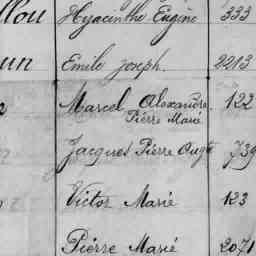 llou Hyacinthe Eugène 333
un Emile Joseph. 2213
Marcel Alexandre 122
Pierre Marie
Jacques Pierre Augte 739
Victor Marie 123
Pierre Marie 2071